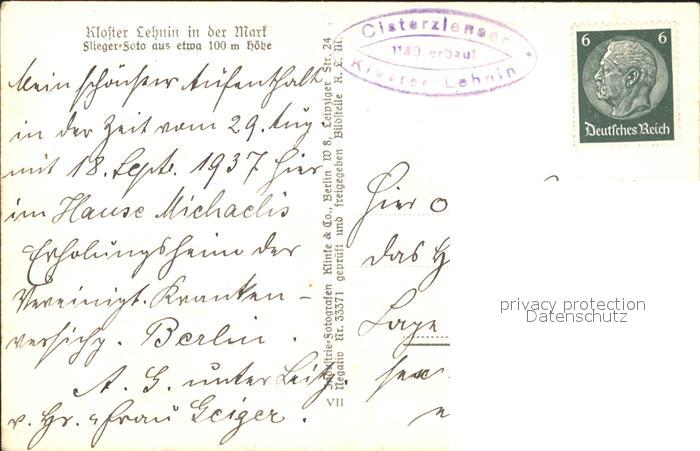 Kloster Lehnin in der Mark
Flieger-Foto aus etwa 100 m Höhe
Mein schönster Aufenthalt
in der Zeit vom 29. Aug.
mit 18. Sept. 1937 hier
im Hause Michaelis
Erholungsheim der
Vereinigt. Kranken-
versichg. Berlin.
A. G. unter Leitg.
v. Hr. u. Frau Geiger.
Industrie-Fotografen Klinke & Co., Berlin W 8, Leipziger Str. 24
Negativ Nr. 33371 geprüft und freigegeben Bildstelle R. L. M.
VII
Cisterzienser
1180 erbaut
Kloster Lehnin
6 6
Deutsches Reich
Hier
das
Lage
privacy protection
Datenschutz